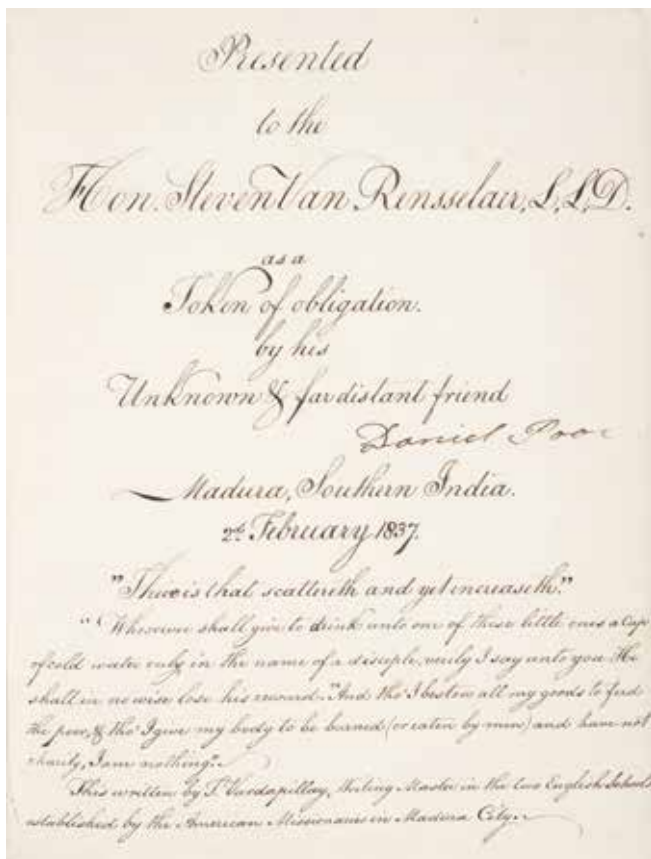 Presented
to the
Hon. Steven Van Rensselair, L,L,D.
as a
Token of obligation.
by his
Unknown & far distant friend
Daniel Poor
Madura, Southern India.
2d. February 1837.
"There is that scattereth and yet increaseth."
"Whosoever shall give to drink unto one of these little ones a Cup
of cold water only in the name of a disciple, verily I say unto you He
shall in no wise lose his reward." And tho' I bestow all my goods to feed
the poor, & tho' I give my body to be burned (or eaten by men) and have not
charity, I am nothing."
This written by T. Vardapillay, Writing Master in the two English Schools
established by the American Missionaries in Madura City.